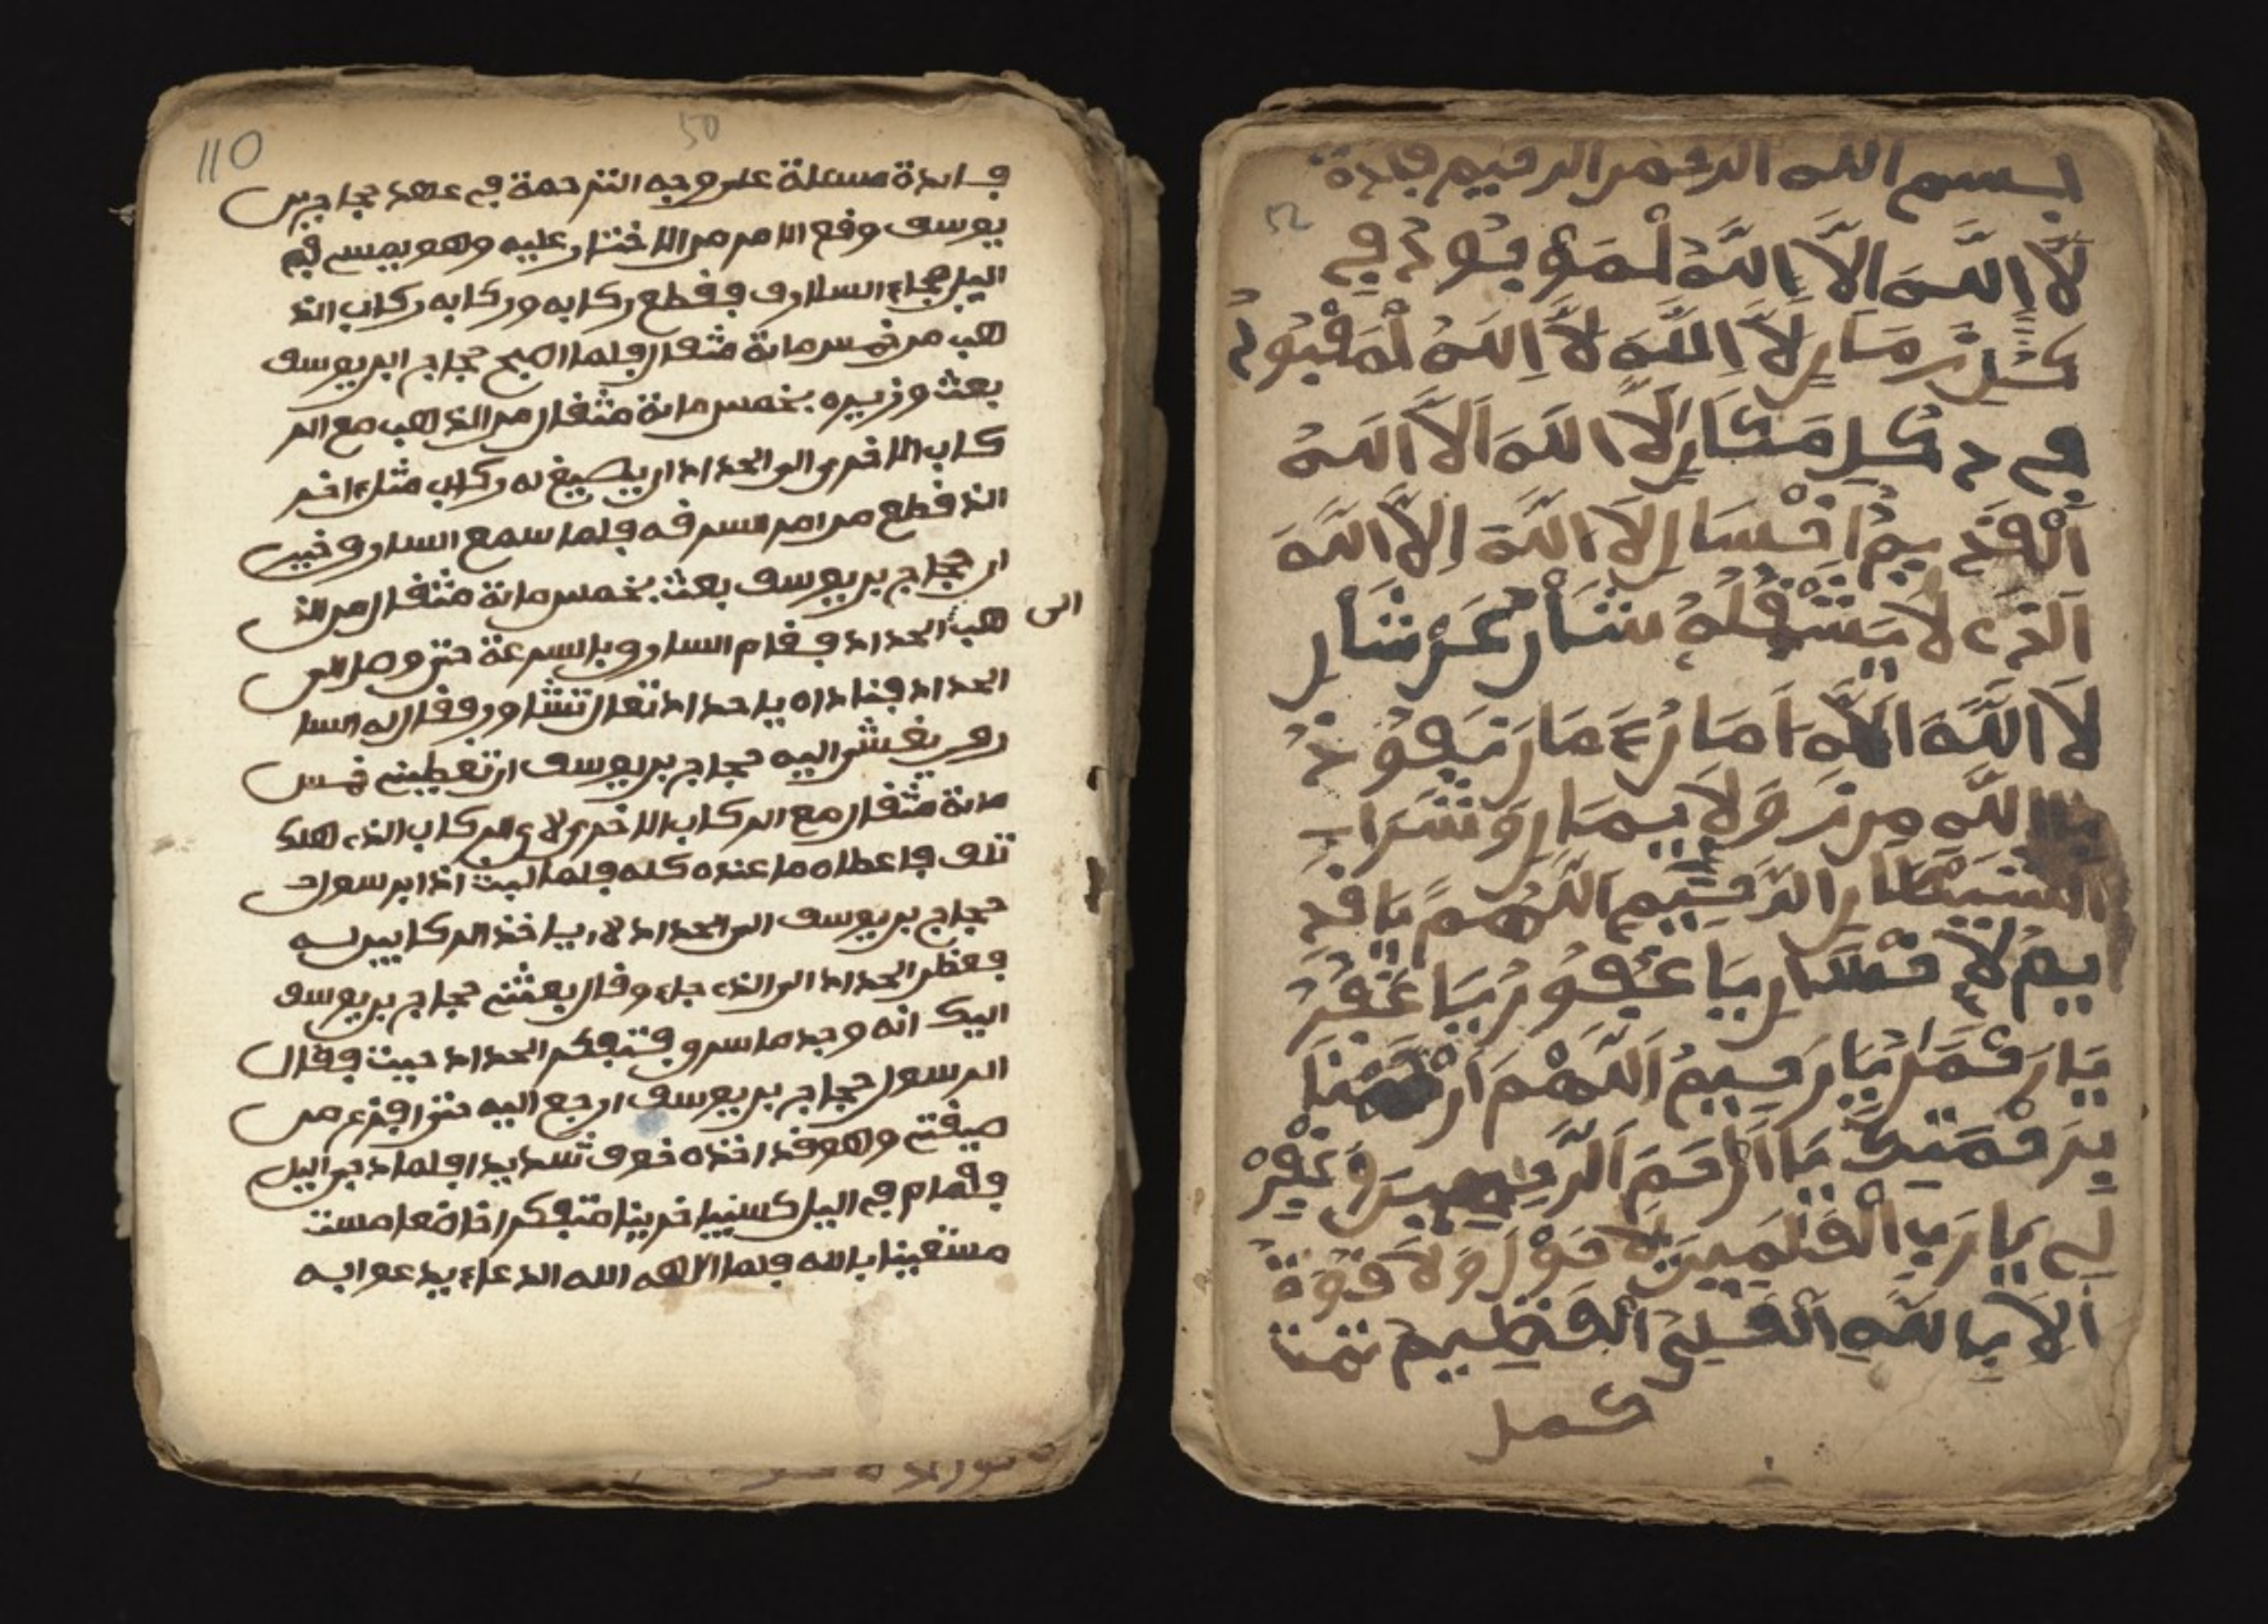 بسم الله الرحمن الرحيم فايدة
52
لا الله الا الله لموجود في
كل زمان لا الله لا الله لمعبود
في كل مكان لا الله الا الله
القديم احسان لا الله الا الله
الذي لا يشغله شأن عن شان
لا الله الا الله امان
بالله من ولا يمان وشراب
الشيطان الرحيم اللهم يا قد
يم لاحسان يا غفور يا غفر
يا رحمن يا رحيم اللهم ارحمنا
برحمتك يا ارحم الرحمين وغفر
لي يا رب العلمين لا حول ولا قوة
الا بالله العلي العظيم تمت
كمل
110
50
فايدة مسئلة على وجه الترحمة في عهد حجاج بن
يوسف وقع الامر من الاختار عليه وهو يمس في
اليل جاء السارق فقطع ركابه وركابه ركاب الذ
هب من خمس ماية مثقال فلما اصبح حجاج ابن يوسف
بعث وزيره بخمس ماية مثقال من الذهب مع الر
كاب الاخرى الى الحداد ان يصيغ له ركاب مثل اخر
الذ قطع من امر السرقه فلما سمع السارق خبر
ان حجاج بن يوسف بعث بخمس ماية مثقال من الذ
هب الى الحداد فقام السارق بالسرعة حتى وصل الى
الحداد فناداه يا حداد تعال نتشاور فقال له السا
رق بعثني اليه حجاج بن يوسف ان تعطيني خمس
ماية مثقال مع الركاب الاخرى لاي الركاب الذي هلك
تلف فاعطاه ما عنده كله فلما لبث اذا برسول
حجاج بن يوسف الى الحداد لان ياخذ الركابين له
فنظر الحداد الى الذي جاء وقال بعثني حجاج بن يوسف
اليك انه وجد ما سرق فتفكر الحداد حيث فقال
الرسول حجاج بن يوسف ارجع اليه حتى افزع من
صيغتي وهو قد اخذه خوف شديدا فلما دجى اليل
فقام في اليل كسيبا حزينا متفكرا خاضعا مست
مستعينا بالله فلما الهه الله الدعاء يدعوا به